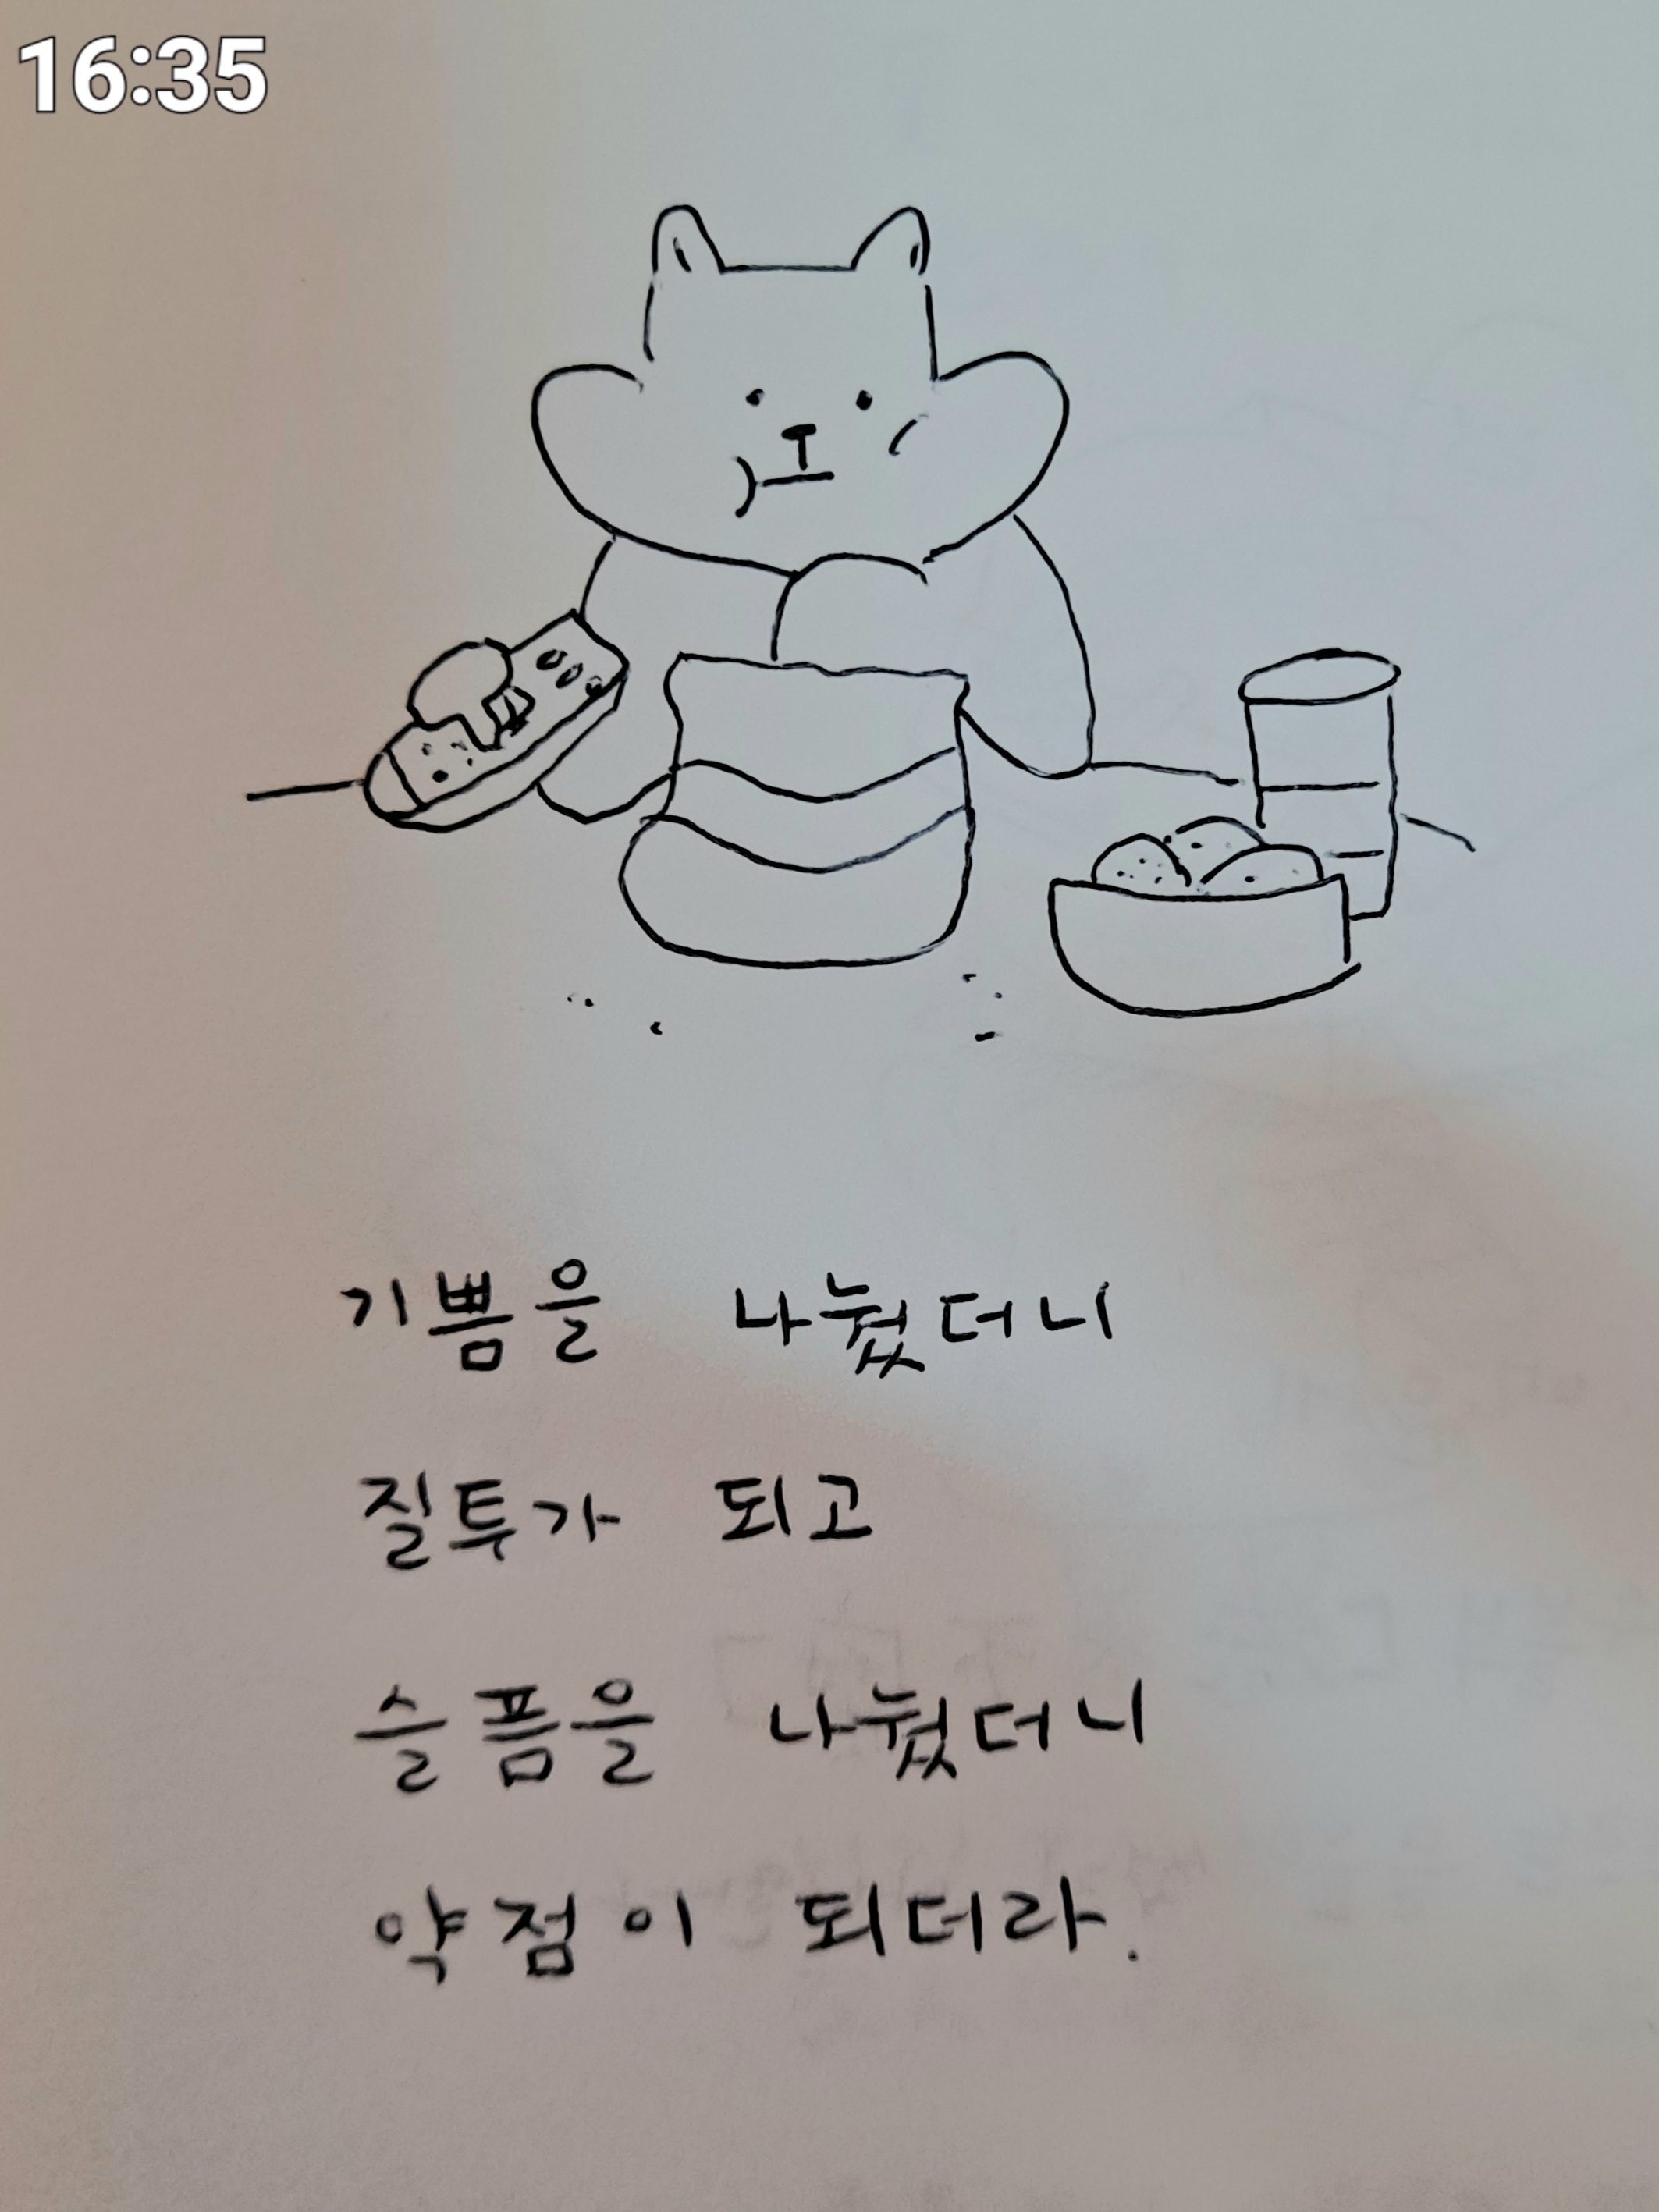 16:35
기쁨을 나눴더니
질투가 되고
슬픔을 나눴더니
약점이 되더라.